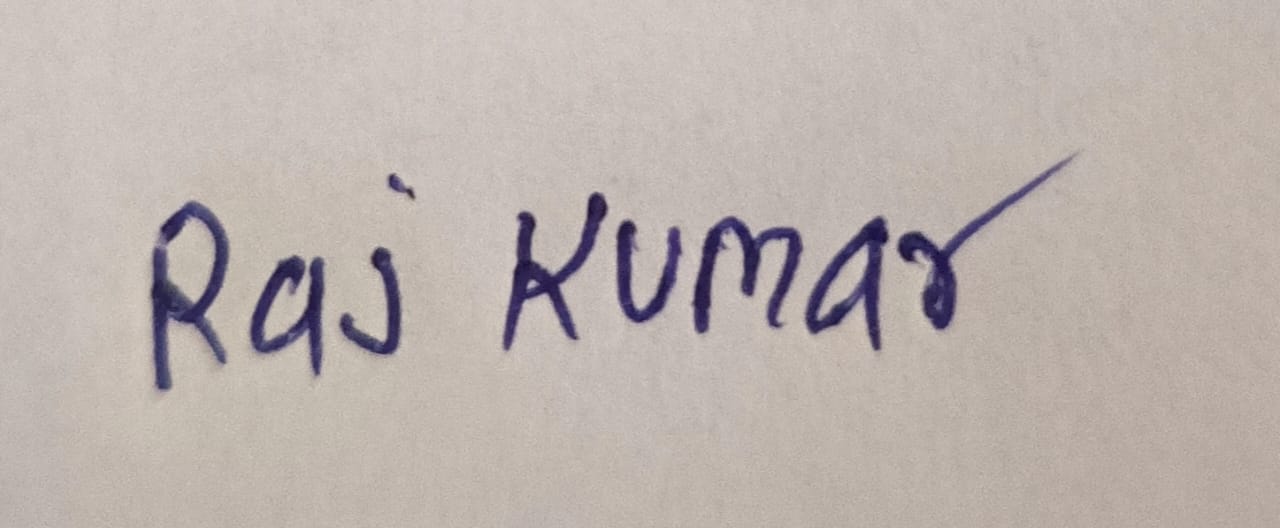 Raj Kumar